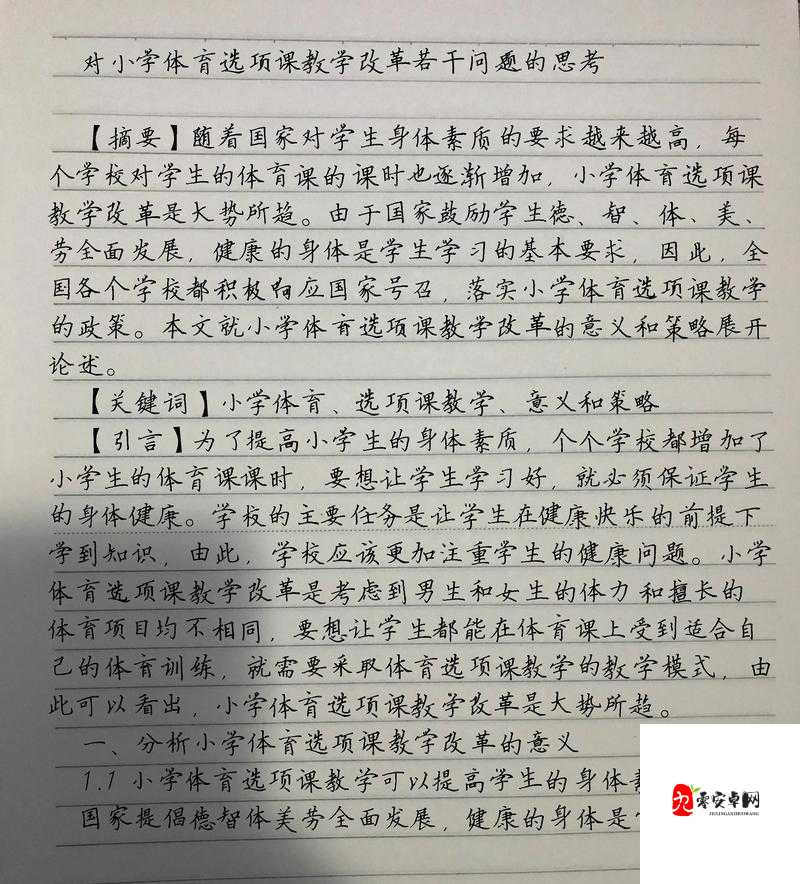 对小学体育选项课教学改革若干问题的思考
【摘要】随着国家对学生身体素质的要求越来越高，每
个学校对学生的体育课的课时也逐渐增加，小学体育选项课
教学改革是大势所趋。由于国家鼓励学生德、智、体、美、
劳全面发展，健康的身体是学生学习的基本要求，因此，全
国各个学校都积极响应国家号召，落实小学体育选项课教学
的政策。本文就小学体育选项课教学改革的意义和策略展开
论述。
【关键词】小学体育、选项课教学、意义和策略
【引言】为了提高小学生的身体素质，个个学校都增加了
小学生的体育课课时，要想让学生学习好，就必须保证学生
的身体健康。学校的主要任务是让学生在健康快乐的前提下
学到知识，由此，学校应该更加注重学生的健康问题。小学
体育选项课教学改革是考虑到男生和女生的体力和擅长的
体育项目均不相同，要想让学生都能在体育课上受到适合自
己的体育训练，就需要采取体育选项课教学的教学模式，由
此可以看出，小学体育选项课教学改革是大势所趋。
一、分析小学体育选项课教学改革的意义
1.1 小学体育选项课教学可以提高学生的身体
国家提倡德智体美劳全面发展，健康的身体是
零安卓网